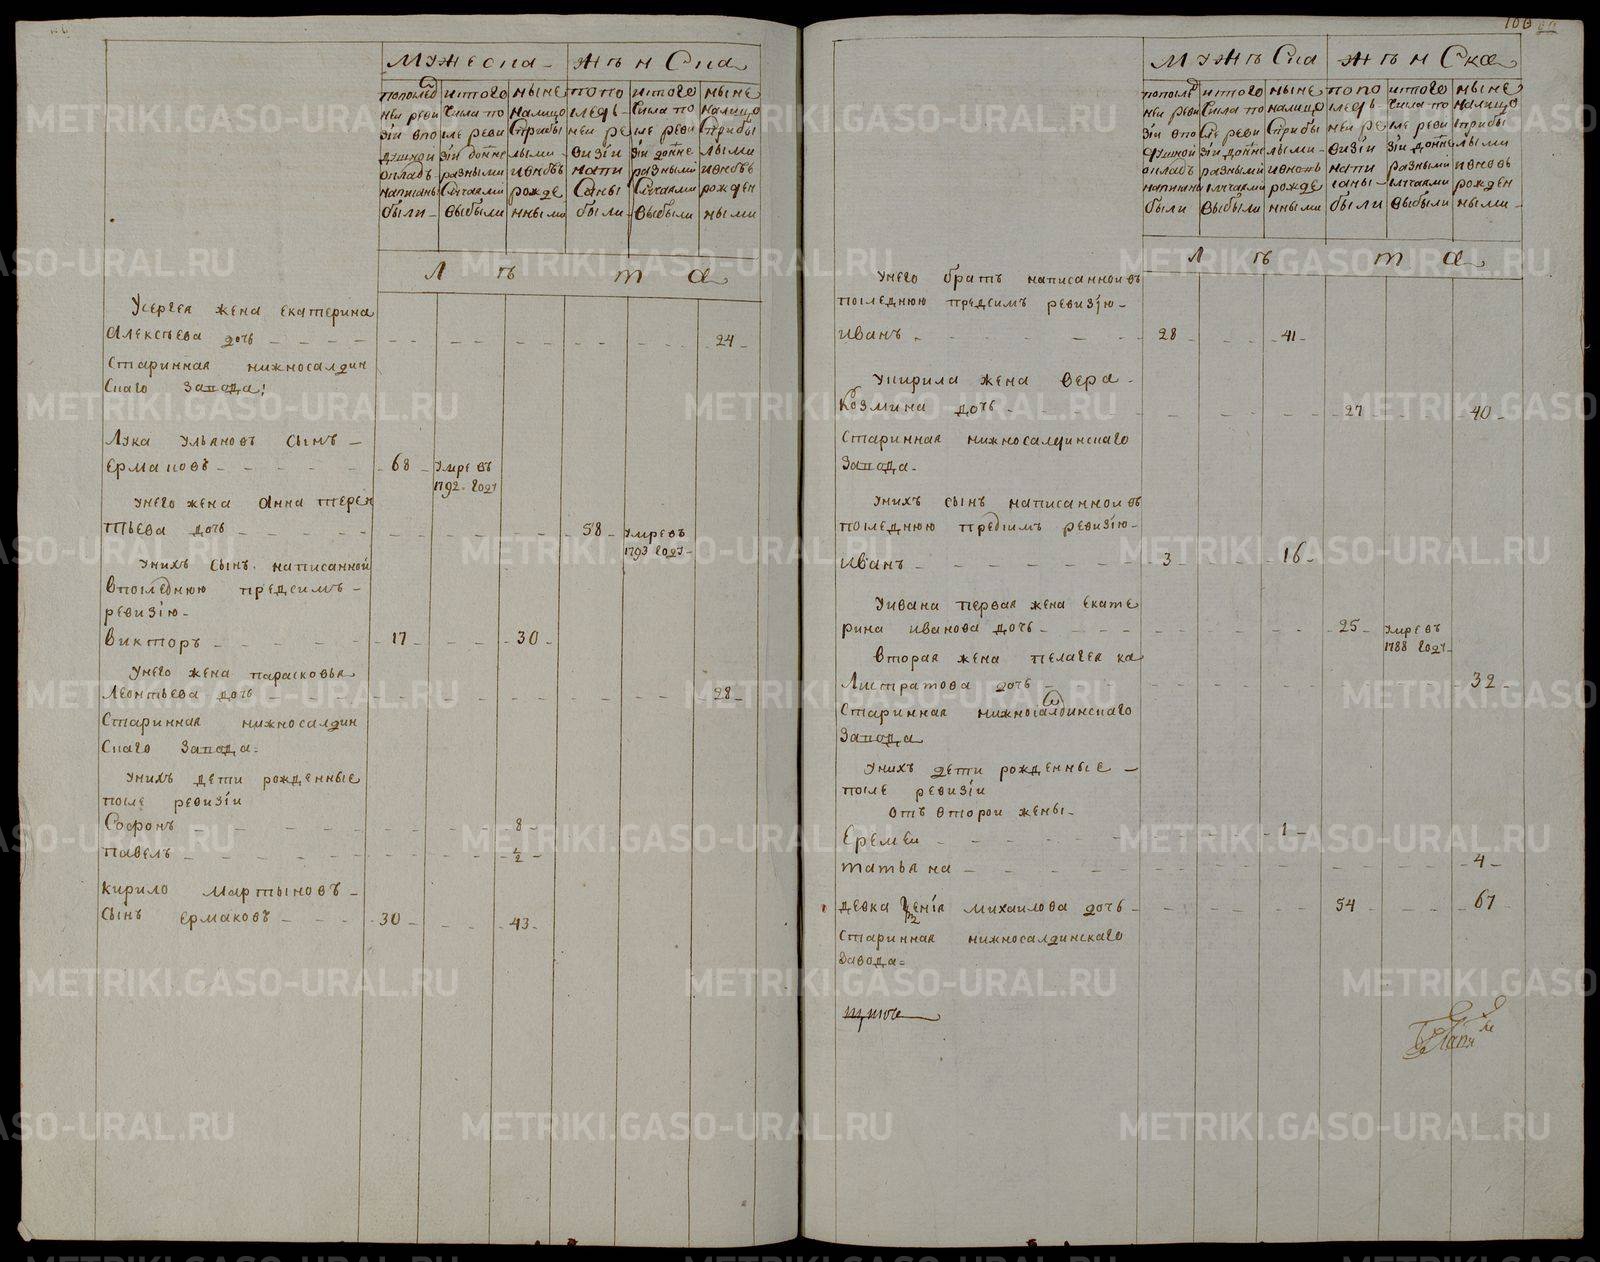 Мужеска Женска
по послед ней реви зіи в по душной окладъ написаны были
изтого числа по сле реви зіи до ны не разными случаями выбыли
ныне на лицо с прибы лыми и вновь рожде нными
по по след ней ре визіи напи саны были
изтого числа по сле реви зіи до ны не разными случаями выбыли
ныне на лицо с прибы лыми и вновь рожден ными
Л ѣ т а
У сергея жена екатерина
Алексѣева дочь 24
Старинная нижносалдин
скаго Завода:
Лука ульяновъ сынъ
ермаковъ 68 умре въ
1792 году
унего жена Анна терен
тьева дочь 58 умре въ
1793 году
унихъ сынъ написанной
впоследнюю предсимъ
ревизію
викторъ 17 30
унего жена парасковья
Леонтьева дочь 28
Старинная нижносалдин
скаго Завода:
унихъ дети рожденные
после ревизіи
Софонъ 8
павелъ 1/2
кирило мартыновъ
сынъ ермаковъ 30 43
100
Мужъска Женска
по послед ней реви зіи в по душной окладъ написаны были
изтого числа по сле реви зіи до ны не разными случаями выбыли
ныне на лицо с прибы лыми и вновь рожде нными
по по след ней ре визіи напи саны были
изтого числа по сле реви зіи до ны не разными случаями выбыли
ныне на лицо с прибы лыми и вновь рожден ными
Л ѣ т а
Унего братъ написанной въ
последнюю предсимъ ревизію
иванъ 28 41
Укирила жена вера
Козмина дочь 27 40
Старинная нижносалдинскаго
Завода
Унихъ сынъ написанной въ
последнюю предсимъ ревизію
иванъ 3 16
Уивана первая жена екате
рина иванова дочь 25 умре въ
1788 году
вторая жена пелагея ка
Листратова дочь 32
Старинная нижносалдинскаго
Завода
Унихъ дети рожденные
после ревизіи
отъ второй жены
Еремей 1
татьяна 4
девка михаилова дочь 54 67
Старинная нижносалдинскаго
Завода
METRIKI.GASO-URAL.RU